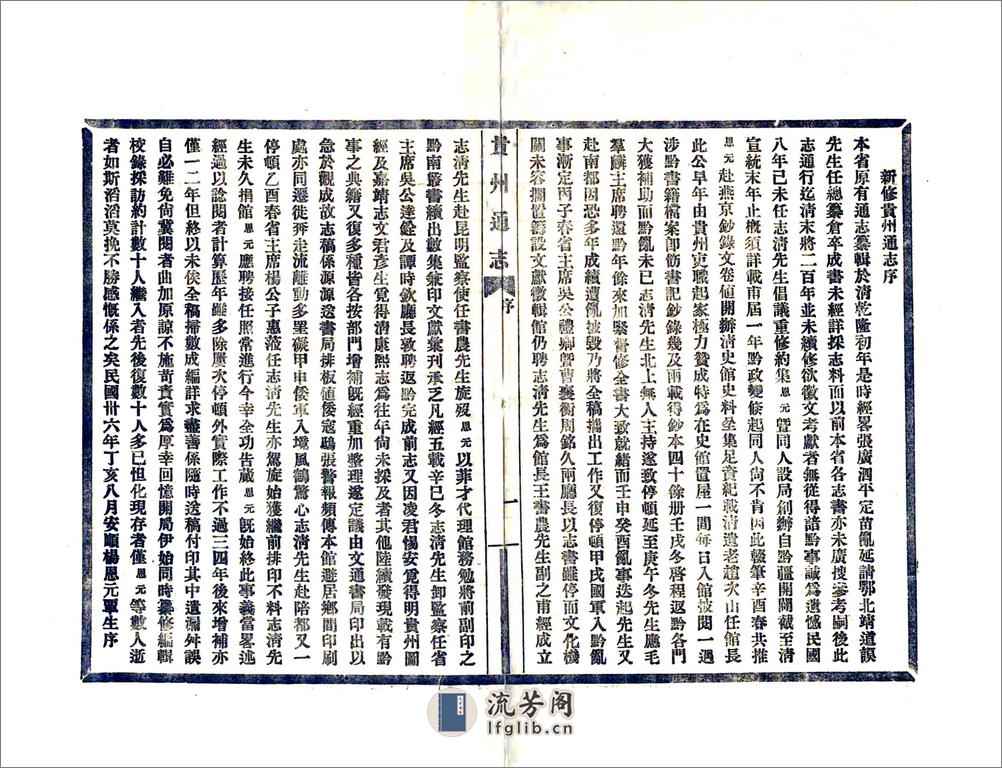 新修貴州通志序
本省原有通志纂輯於清乾隆初年是時經畧張廣泗平定苗亂延請鄂北靖道謨
先生任總纂倉卒成書未經詳採志料而以前本省各志書亦未廣搜參考嗣後此
志通行迄清末將二百年並未續修欲徵文考獻者無從得諳黔事誠為遺憾民國
八年已未任志清先生倡議重修約集恩元暨同人設局創辦自黔疆開闢截至清
宣統末年止概須詳載甫屆一年黔政變倏起同人尚不肯因此輟筆辛酉春共推
恩元赴燕京鈔錄文卷值開辦清史館史料坌集足資紀載清遺老趙次山任館長
此公早年由貴州吏職起家極力贊成特為在史館置屋一間每日入館披閱一遇
涉黔書籍檔案卽飭書記鈔錄幾及兩載得鈔本四十餘册壬戌冬啓程返黔各門
大獲補助而黔亂未已志清先生北上無人主持遂致停頓延至庚午冬先生應毛
羣麟主席聘還黔年餘來加緊督修全書大致就緒而壬申癸酉亂事迭起先生又
赴南都因恐多年成績遭亂被毀乃將全稿攜出工作又復停頓甲戌國軍入黔亂
事漸定丙子春省主席吳公禮卿暨曹襄衡周銘久兩廳長以志書雖停而文化機
關未容擱置籌設文獻徵輯館仍聘志清先生為館長王書農先生副之甫經成立
貴州通志
序
一
志清先生赴昆明監察使任書農先生旋歿恩元以菲才代理館務勉將前副印之
黔南叢書續出數集兼印文獻彙刊承乏凡經五載辛巳冬志清先生卸監察任省
主席吳公達銓及譚時欽廳長敦聘返黔完成前志又因凌君惕安覓得明貴州圖
經及嘉靖志文君彥生覓得清康熙志為往年尚未採及者其他陸續發現載有黔
事之典籍又復多種皆各按部門增補旣經重加整理遂定議由文通書局印出以
急於觀成故志稿係源源送書局排板值倭寇鴟張警報頻傳本館避居鄉間印刷
處亦同遷徙奔走流離動多罣礙甲申倭軍入境風鶴驚心志清先生赴陪都又一
停頓乙酉春省主席楊公子惠蒞任志清先生駕旋始獲繼前排印不料志清先
生未久捐館恩元應聘接任照常進行今幸全功告蕆恩元旣始終此事義當畧述
經過以諗閱者計算歷年雖多除屢次停頓外實際工作不過三四年後來增補亦
僅一二年但終以未俟全稿掃數成編詳求盡善係隨時送稿付印其中遺漏舛誤
自必難免尚冀閱者曲加原諒不施苛責實為厚幸回憶開局伊始同時纂修編輯
校錄採訪約計數十人繼入者先後復數十人多已怛化現存者僅恩元等數人逝
者如斯滔滔莫挽不勝感慨係之矣民國卅六年丁亥八月安順楊恩元覃生序
流芳阁
lfglib.cn